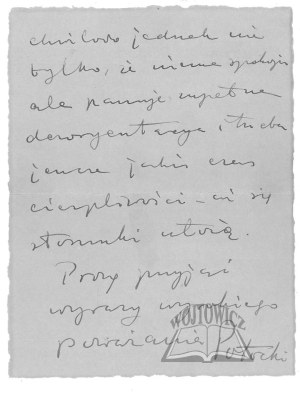 chwilowo jednak nie
tylko, że niema spokoju
ale panuje zupełna
dezorjentacja i trzeba
jeszcze jakiś czas
cierpliwości – aż się
stosunki
Proszę przyjąć
wyrazy wysokiego
poważania
WÓJTOWICZ